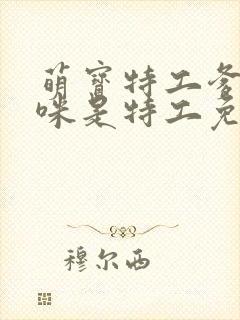 萌寶特工爹
咪是特工免
穆尔西